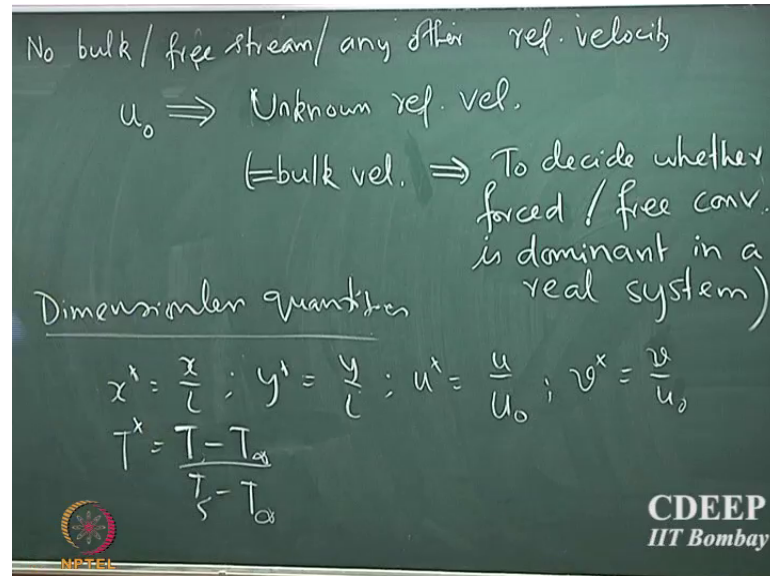 No bulk / free stream / any other ref. velocity
u₀ ⇒ Unknown ref. vel.
(=bulk vel. ⇒ To decide whether
forced / free conv.
is dominant in a
real system)
Dimensionler quantities
x* = x/L ; y* = y/L ; u* = u/u₀ ; v* = v/u₀
T* = (T - T∞)/(Ts - T∞)
CDEEP
IIT Bombay
NPTEL